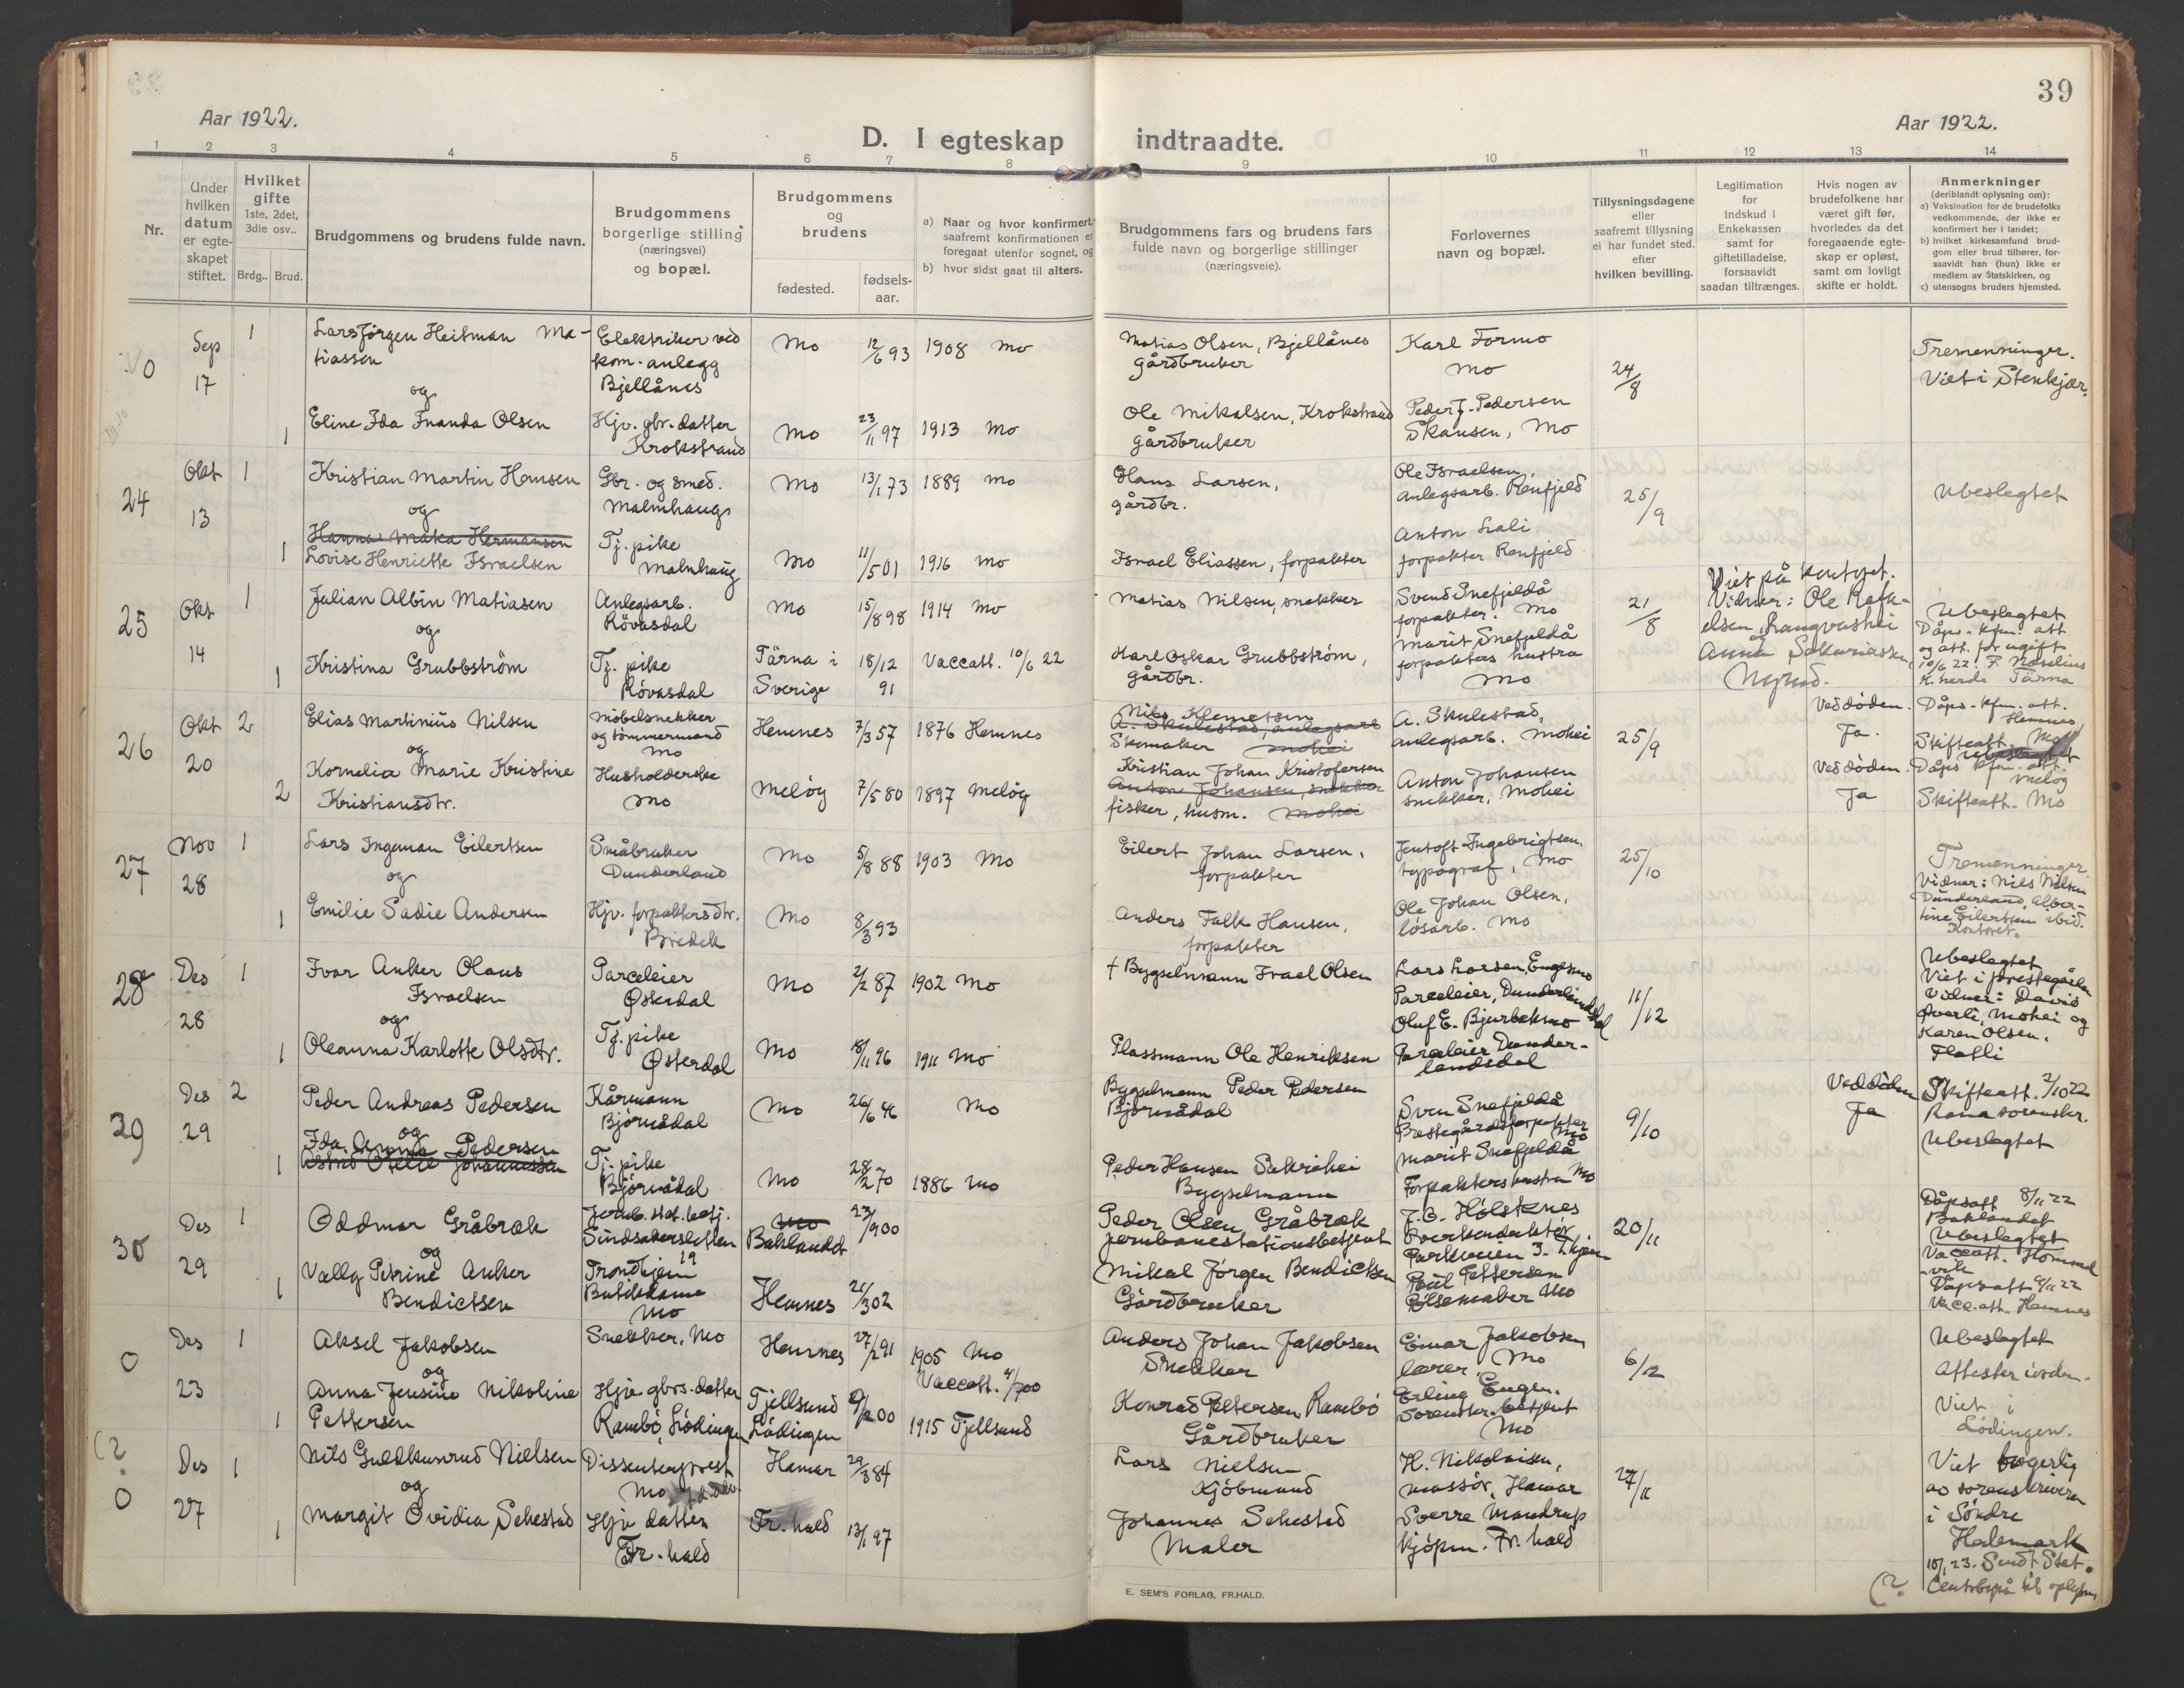 39
Aar 1922.
Aar 1922.
D. I egteskap indtraadte.
1 2 3 4 5 6 7 8 9 10 11 12 13 14
Nr.
Under hvilken datum er egteskapet stiftet.
Hvilket gifte 1ste, 2det, 3die osv..
Brdg. Brud.
Brudgommens og brudens fulde navn.
Brudgommens borgerlige stilling (næringsvei) og bopæl.
Brudgommens og brudens
fødested. fødselsaar.
a) Naar og hvor konfirmert, saafremt konfirmationen er foregaat utenfor sognet, og
b) hvor sidst gaat til alters.
Brudgommens fars og brudens fars fulde navn og borgerlige stillinger (næringsveie).
Forlovernes navn og bopæl.
Tillysningsdagene eller saafremt tillysning ei har fundet sted. efter hvilken bevilling.
Legitimation for indskud i Enkekassen samt for giftetilladelse, forsaavidt saadan tiltrænges.
Hvis nogen av brudefolkene har været gift før, hvorledes da det foregaaende egteskap er opløst, samt om lovligt skifte er holdt.
Anmerkninger (deriblandt oplysning om):
a) Vaksination for de brudefolks vedkommende, der ikke er konfirmert her i landet;
b) hvilket kirkesamfund brudgom eller brud tilhører, forsaavidt han (hun) ikke er medlem av Statskirken, og
c) utensogns bruders hjemsted.
0 Sep 17 1 Lars Jörgen Heitman Matiassen Elektriker ved kom. anlegg Bjellånes Mo 12/6 93 1908 Mo Matias Olsen, Bjellånes gårdbruker Karl Formo Mo 24/8 Tremenninger. Viet i Stenkjær.
og
1 Eline Ida Inanda Olsen Hjv. gbr. datter Krokstrand Mo 23/11 97 1913 Mo Ole Mikalsen, Krokstrand gårdbruker Peder J. Pedersen Skansen, Mo
24 Okt 13 1 Kristian Martin Hansen Gbr. og smed. Malmhaug Mo 13/1 73 1889 Mo Hans Larsen, gårdbr. Ole Israelsen, anlegsarb. Renfjeld 25/9 Ubeslegtet
og
Hanna Maka Hermansen
1 Lovise Henriette Israelsen Tj. pike Malmhaug Mo 11/5 01 1916 Mo Israel Eliassen, forpakter Anton Lali forpakter Renfjeld
25 Okt 14 1 Julian Albin Matiasen Anlegsarb. Rövasdal Mo 15/8 98 1914 Mo Matias Nilsen, snekker Svend Snefjeldå forpakter. Mo 21/8 Viet på kontoret. Vidner: Ole Rafaelsen, Langvashei og Anna Sakariassen, Nyrud. Ubeslegtet Dåps- kfm. att. og att. for ugift 10/6 22. F. Noselius k. herde Tärna
og
1 Kristina Grubbström Tj. pike Rövasdal Tärna i Sverige 18/12 91 Vaccatt. 10/6 22 Karl Oskar Grubbström, gårdbr. Marit Snefjeldå forpakters hustru Mo
26 Okt 20 2 Elias Martinius Nilsen Möbelsnekker og tömmermand Mo Hemnes 7/3 57 1876 Hemnes Nils Klemetsen Skomaker A. Skulestad, anlegsarb. Mohei 25/9 Ved döden. Ja. Dåps- kfm. att. Hemnes Skifteatt. Mo
og
2 Kornelia Marie Kristine Kristiansdtr. Husholderske Mo Melöy 7/5 80 1897 Melöy Kristian Johan Kristofersen Anton Johansen, snekker fisker, husm. Mohei Anton Johansen snekker, Mohei Ved döden. Ja Dåps kfm. att. Melöy Skifteatt. Mo
27 Nov 28 1 Lars Ingeman Eilertsen Småbruker Dunderland Mo 5/8 88 1903 Mo Eilert Johan Larsen, forpakter Jentoft Ingebrigtsen, typograf, Mo 25/10 Tremenninger. Vidner: Nils Nilsen Dunderland, Albertine Eilertsen ibid. Kontoret.
og
1 Emilie Sadie Andersen Hjv. forpaktersdtr. Bredek Mo 8/3 93 Anders Falk Hansen, forpakter Ole Johan Olsen, lösarb. Mo
28 Des 28 1 Ivar Anker Olaus Israelsen Parceleier Østerdal Mo 2/2 87 1902 Mo † Bygselmann Israel Olsen Lars Larsen, Engesmo Parceleier, Dunderlandsdal 11/12 Ubeslegtet Viet i prestegården Vidner: David Øverli, Mohei og Karen Olsen, Flatli
og
1 Oleanna Karlotte Olsdtr. Tj. pike Østerdal Mo 18/11 96 1911 Mo Plassmann Ole Henriksen Oluf E. Bjurbeksmo Parceleier Dunderlandsdal
29 Des 29 2 Peder Andreas Pedersen Kårmann Bjørnådal Mo 26/6 46 Mo Bygselmann Peder Pedersen Bjørnådal Sven Snefjeldå Prestegårdsforpakter Mo 9/10 Ved döden Ja Skifteatt. 2/10 22 Rana sorenskr. Ubeslegtet
og
1 Ida Anna Pedersen Astrid Otelie Johannessen Tj. pike Bjørnådal Mo 28/2 70 1886 Mo Peder Hansen Sakrihei Bygselmann Marit Snefjeldå Forpakters hustru Mo
30 Des 29 1 Oddmar Gråbræk Jernb. stat. betj. Sindsakersletten 19 Trondhjem Mo Baklandet 23/9 00 Peder Olsen Gråbræk jernbanestationsbetjent J. O. Hølstenes Overkonduktør Parkveien 3. Thjem 20/11 Dåpsatt 8/11 22 Baklandet Ubeslegtet Vaccatt. Hommelvik
og
1 Vally Petrine Anker Bendictsen Butikdame Mo Hemnes 21/3 02 Mikal Jørgen Bendictsen Gårdbruker Paul Pettersen Pølsemaker Mo Dåpsatt 9/11 22 Vacc. att. Hemnes
0 Des 23 1 Aksel Jakobsen Snekker, Mo Hemnes 27/2 91 1905 Mo Anders Johan Jakobsen Snekker Einar Jakobsen lærer. Mo 6/12 Ubeslegtet Attester iorden.
og
1 Anna Jensine Nikoline Pettersen Hjv. gbrs. datter Rambö, Lödingen Tjellsund Lödingen 00 Vaccatt. 4/7 00 1915 Tjellsund Konrad Pettersen Rambö Gårdbruker Erling Eugen. Sorenskr. betjent Mo Viet i Lödingen.
(?
0 Des 27 1 Nils Guldkunrud Nielsen Dissenterprest Mo Hamar 29/3 84 Lars Nielsen Kjöbmand H. Nikolaisen, massör, Hamar 27/11 Viet borgerlig av sorenskriveren i Söndre Hedemark
og
1 Margit Ovidia Sehested Hjv. datter Fr. hald Fr. hald 13/1 97 Johannes Sehested Maler Sverre Mandrup kjöpm. Fr. hald 10/1 23. Sendt Stat. Centrbyrå til oplysn.
(?
E. SEM'S FORLAG, FR.HALD.